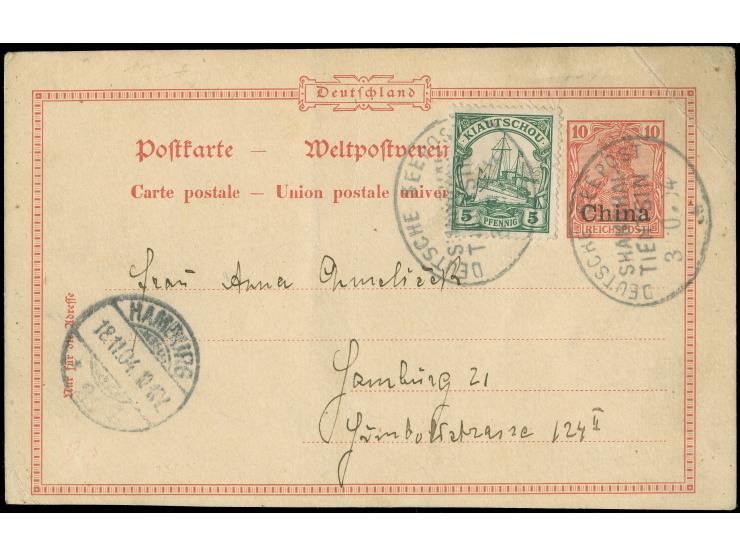 Deutschland
Postkarte — Weltpostverein
Carte postale — Union postale univer
KIAUTSCHOU
5 PFENNIG 5
10 10
China
REICHSPOST
DEUTSCHE SEEPOST
DEUTSCHE SEEPOST
SHANGHAI
TIENTSIN
Frau Anna
Nur für die Adresse
HAMBURG
18.11.04.
Hamburg 21
Humboldtstrasse 124 II